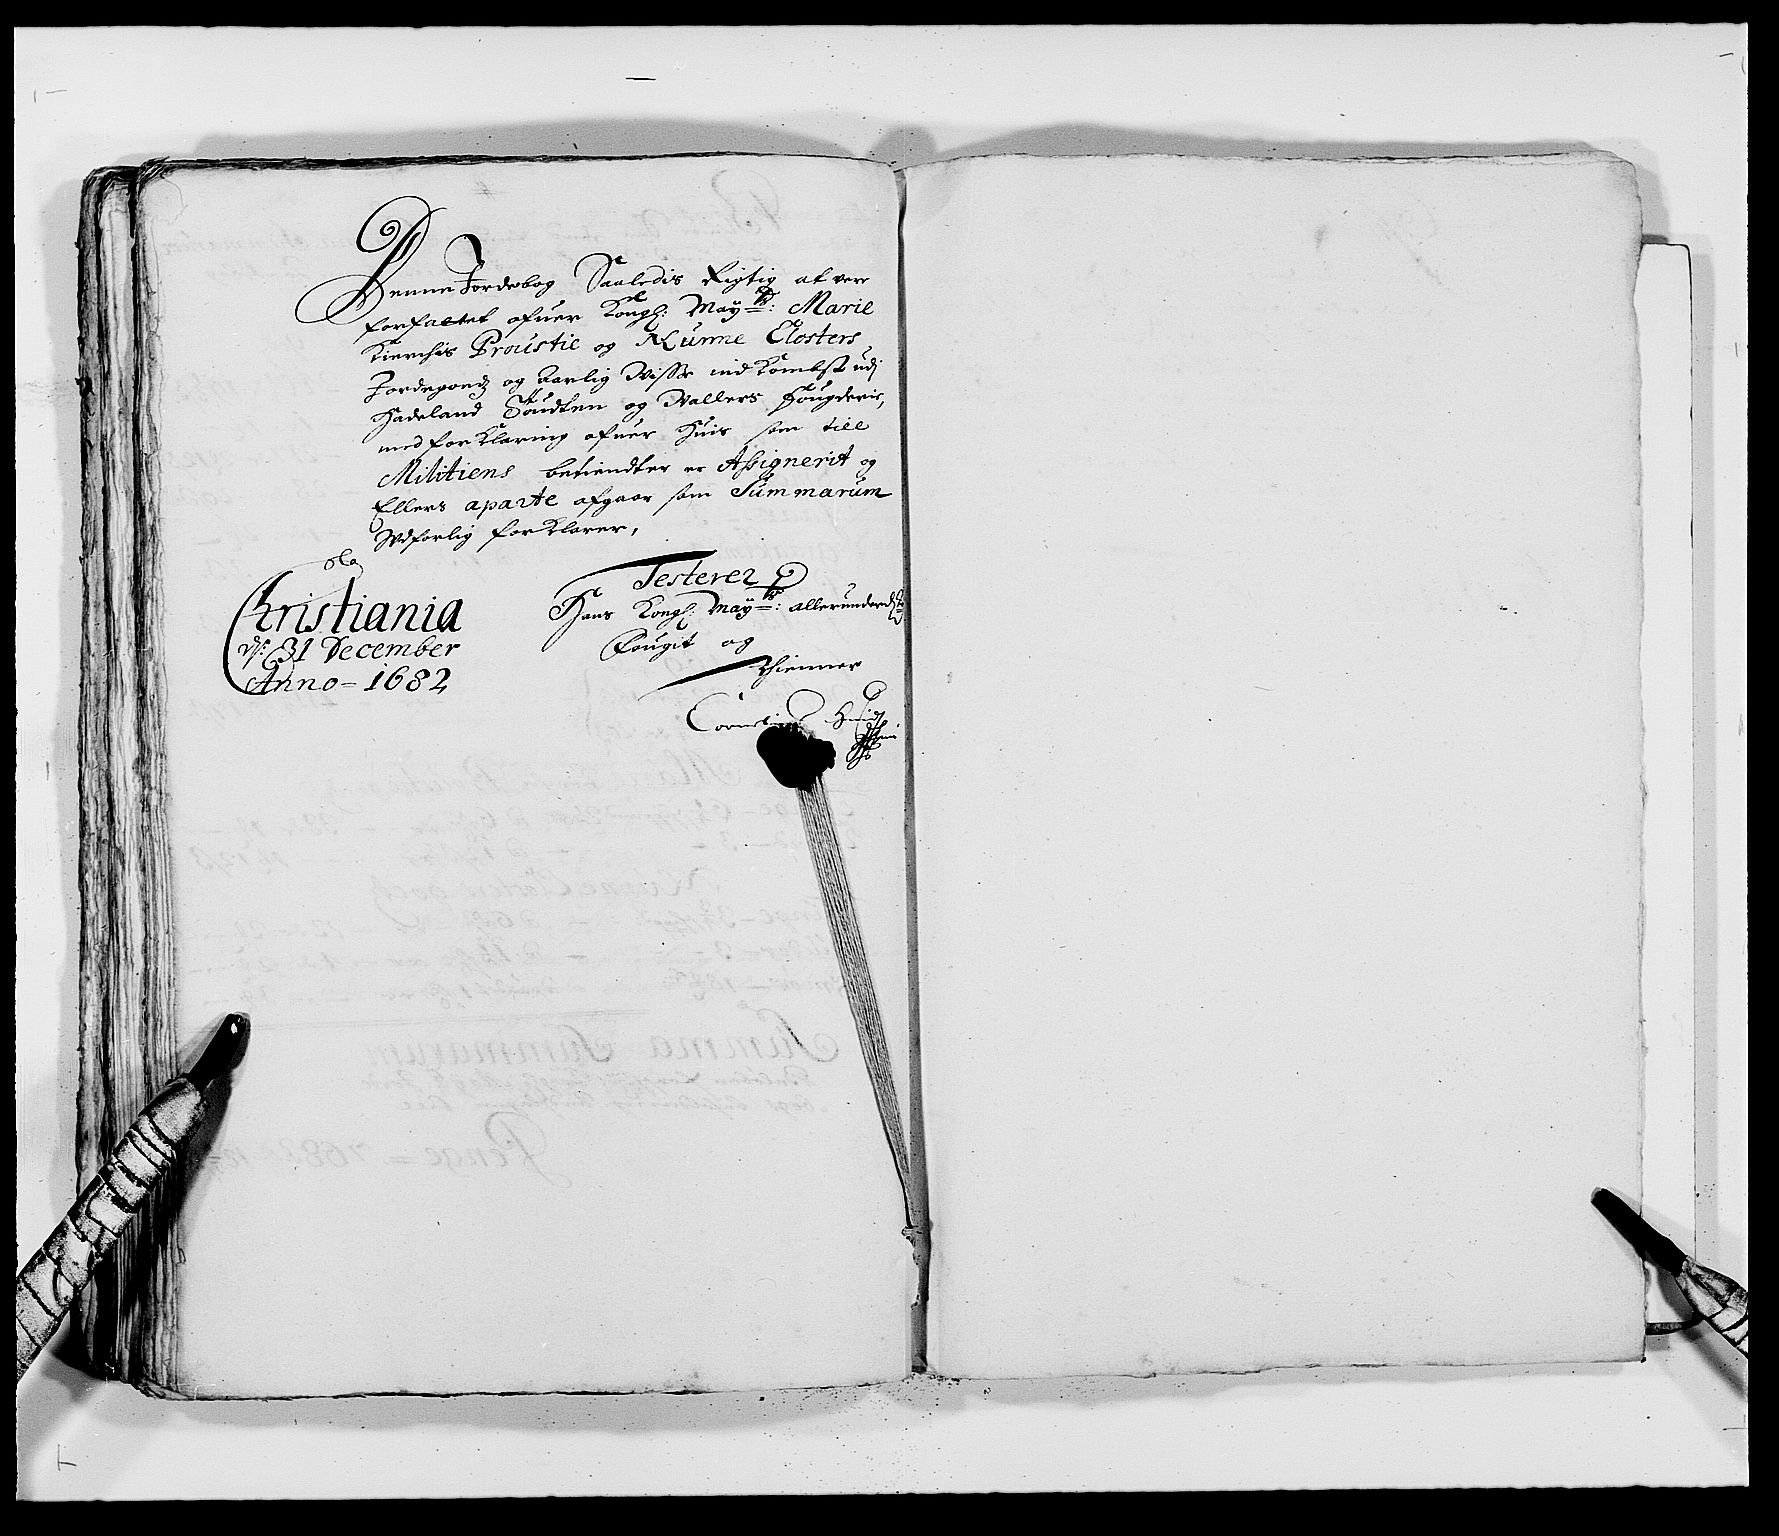 Denne Jordebog Saaledis Rigtig at vere
forfattet ofuer Kongl: May:ts: Marie
Kierchis Proustie og Nunne Closters
Jordegodz og Aarlig Visse indkombst udj
Hadeland Toudten og Vallers fougderie,
med forklaring ofuer huis som till
Militiens betiendter er Assignerit og
Ellers aparte afgaar som Summarum
Vdforlig forklarer,
Christiania
d: 31 December
Anno = 1682
Testerer
Hans Kongl: May:ts: allerunderd:ste
Fougit og
Thienner
Cornelius